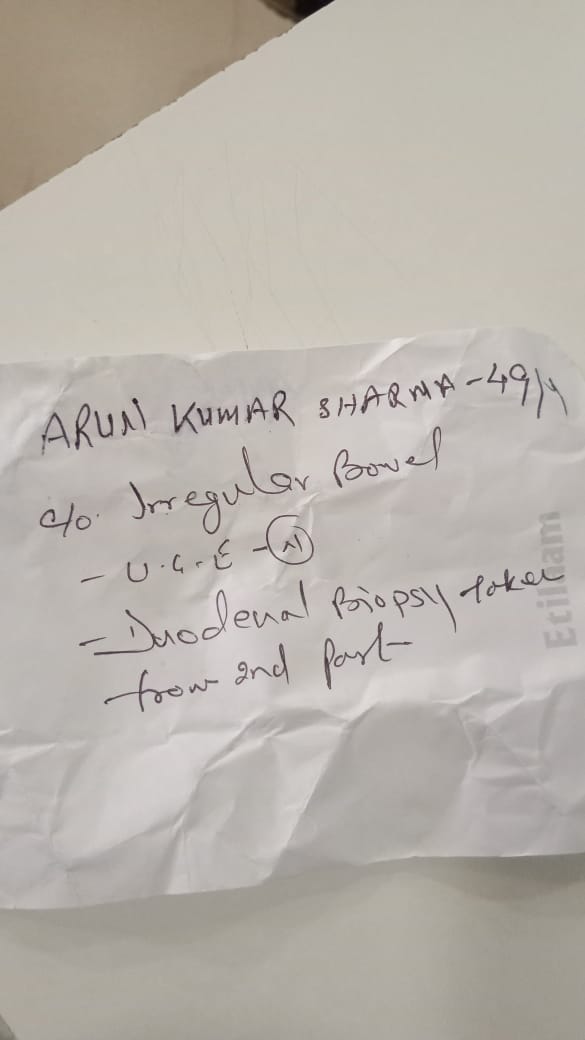 ARUN KUMAR SHARMA - 49/M
c/o. Irregular Bowel
- U.G.E - (N)
- Duodenal Biopsy taken
from 2nd part
Etilaam